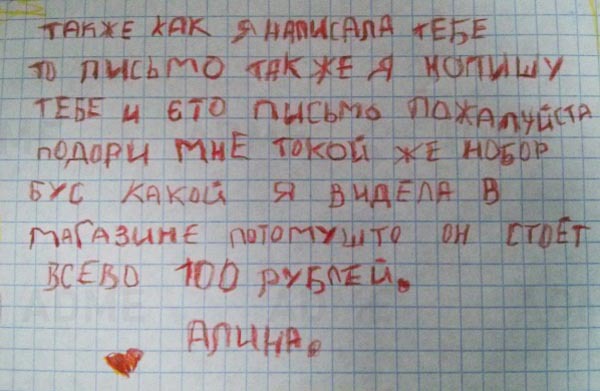 ТАКЖЕ КАК Я НАПИСАЛА ТЕБЕ
ТО ПИСЬМО ТАКЖЕ Я НОПИШУ
ТЕБЕ И ЄТО ПИСЬМО ПОЖАЛУЙСТА
ПОДОРИ МНЕ ТОКОЙ ЖЕ НОБОР
БУС КАКОЙ Я ВИДЕЛА В
МАГАЗИНЕ ПОТОМУШТО ОН СТОЕТ
ВСЕВО 100 РУБЛЕЙ.
АЛИНА.